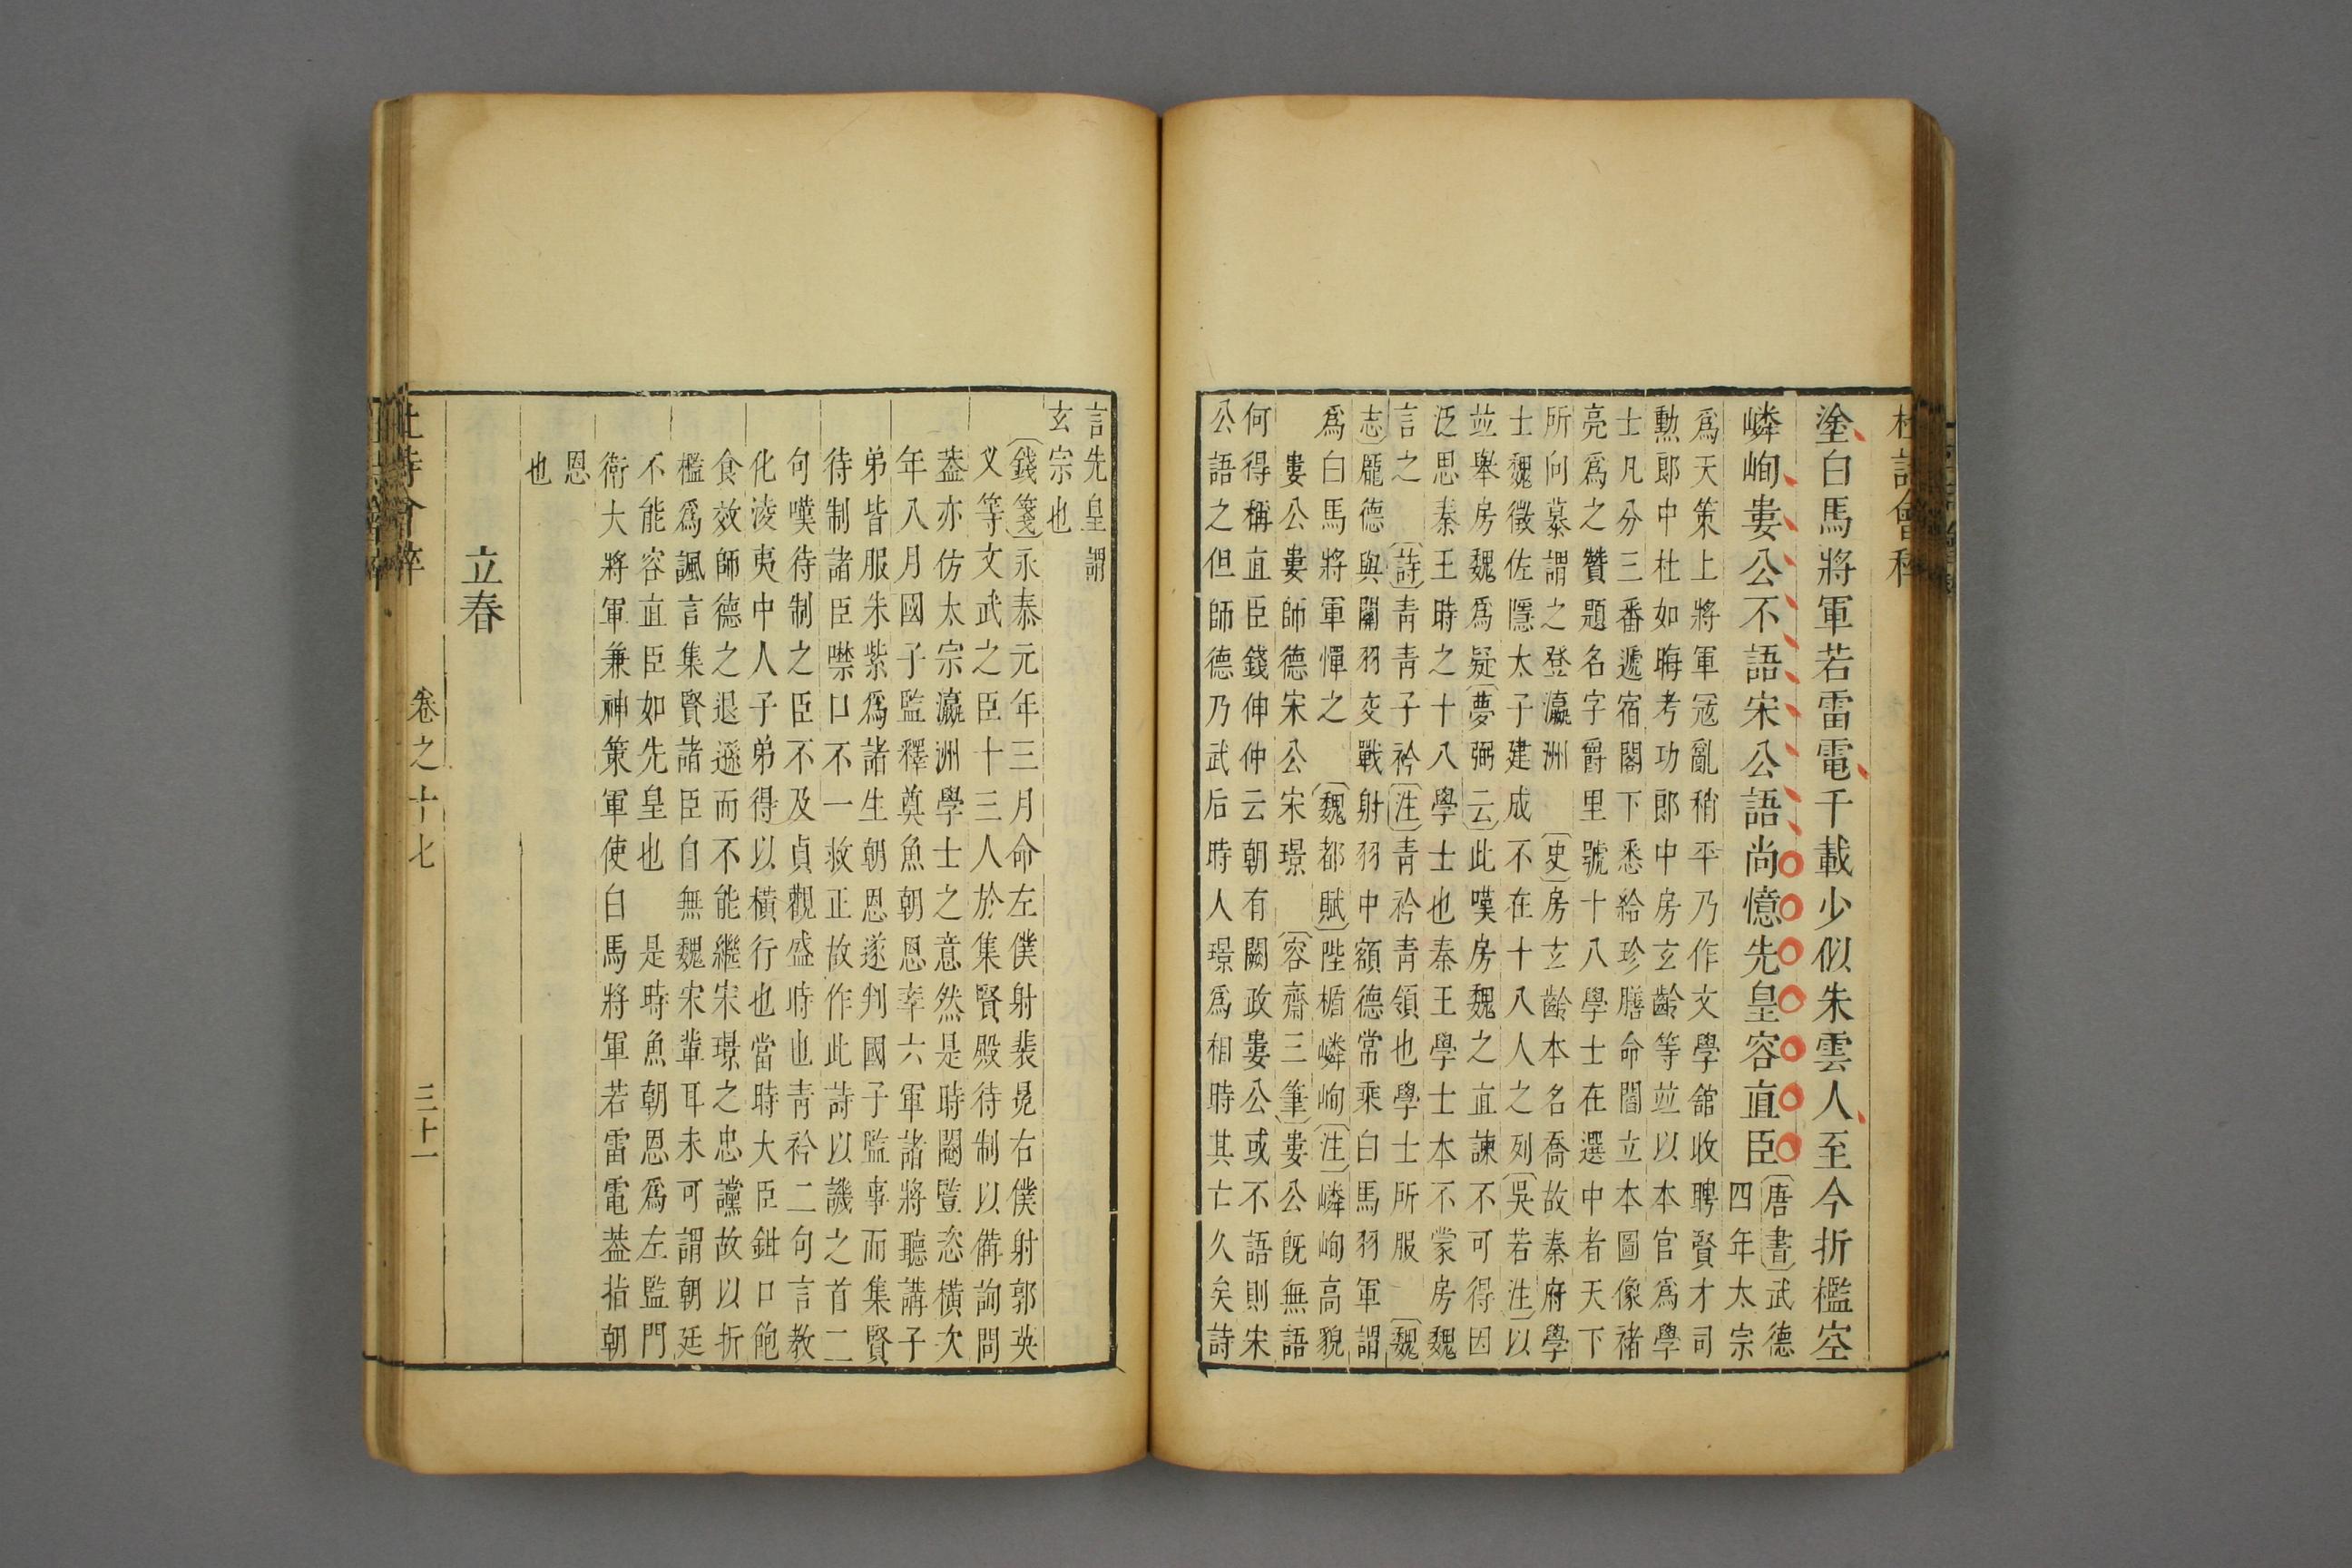 杜詩會稡
塗白馬將軍若雷電千載少似朱雲人至今折檻空
嶙峋婁公不語宋公語尚憶先皇容直臣〔唐書〕武德
四年太宗
爲天策上將軍冦亂稍平乃作文學舘收聘賢才司
勳郎中杜如晦考功郎中房玄齡等並以本官爲學
士凡分三番遞宿閣下悉給珍膳命閻立本圖像褚
亮爲之贊題名字爵里號十八學士在選中者天下
所向慕謂之登瀛洲〔史〕房玄齡本名喬故秦府學
士魏徵佐隱太子建成不在十八人之列〔吳若注〕以
並舉房魏爲疑〔夢弼云〕此嘆房魏之直諫不可得因
泛思秦王時之十八學士也秦王學士本不蒙房魏
言之〔詩〕青青子衿〔注〕青衿青領也學士所服〔魏
志〕龐德與關羽交戰射羽中額德常乘白馬羽軍謂
爲白馬將軍憚之〔魏都賦〕陛楯嶙峋〔注〕嶙峋高貌
婁公婁師德宋公宋璟〔容齋三筆〕婁公旣無語
何得稱直臣錢伸仲云朝有闕政婁公或不語則宋
公語之但師德乃武后時人璟爲相時其亡久矣詩
言先皇謂
玄宗也
〔錢箋〕永泰元年三月命左僕射裴冕右僕射郭英
乂等文武之臣十三人於集賢殿待制以備詢問
葢亦仿太宗瀛洲學士之意然是時閹豎恣橫次
年八月國子監釋奠魚朝恩率六軍諸將聽講子
弟皆服朱紫爲諸生朝恩遂判國子監事而集賢
待制諸臣噤口不一救正故作此詩以譏之首二
句嘆待制之臣不及貞觀盛時也青衿二句言教
化淩夷中人子弟得以橫行也當時大臣鉗口飽
食效師德之退遜而不能繼宋璟之忠讜故以折
檻爲諷言集賢諸臣自無魏宋輩耳未可謂朝廷
不能容直臣如先皇也　是時魚朝恩爲左監門
衛大將軍兼神策軍使白馬將軍若雷電葢指朝
恩
也
立春
杜詩會稡
卷之十七
三十一